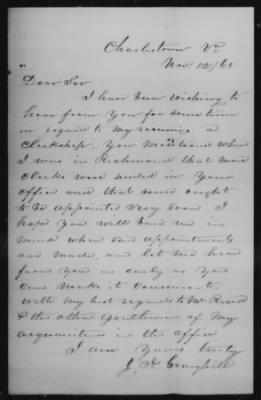 Charlestown Va
Nov 12/61
Dear Sir
I have been wishing to
hear from you for sometime
in regard to my receiving a
clerkship, you mentioned when
I was in Richmond that more
clerks were needed in your
office and that some ought
to be appointed very soon. I
hope you will bear me in
mind when said appointments
are made, and let me hear
from you as early as you
can make it convenient
with my best regards to Mr
& the other gentlemen of my
acquaintance in the office
I am Yours truly
J. Craighill